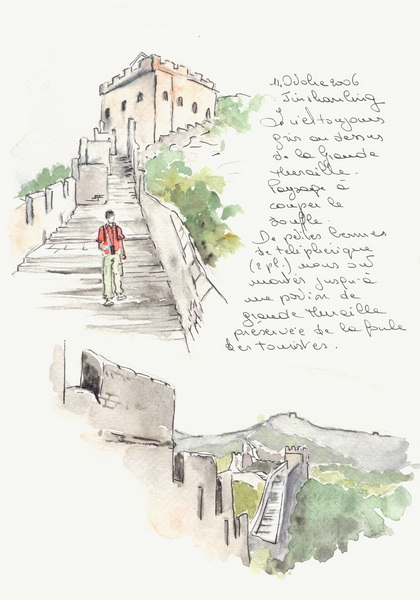 11 Octobre 2006
Jinshanling
Le ciel toujours
gris au dessus
de la Grande
Muraille.
Paysage à
couper le
souffle.
De petites bennes
de téléphérique
(2 pl.) nous ont
montés jusqu'à
une portion de
grande Muraille
préservée de la foule
des touristes.